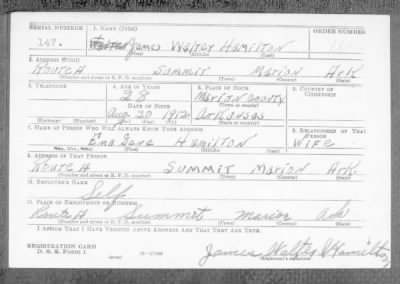 SERIAL NUMBER 1. NAME (Print) ORDER NUMBER
147. James Walter Hamilton
(First) (Middle) (Last)
2. ADDRESS (Print)
Route A Summit Marion Ark
(Number and street or R. F. D. number) (Town) (County) (State)
3. TELEPHONE 4. AGE IN YEARS 5. PLACE OF BIRTH 6. COUNTRY OF CITIZENSHIP
28 Marion County
DATE OF BIRTH (Town or county)
Aug 20 1912 Arkansas
(Exchange) (Number) (Mo.) (Day) (Yr.) (State or country)
7. NAME OF PERSON WHO WILL ALWAYS KNOW YOUR ADDRESS 8. RELATIONSHIP OF THAT PERSON
Jane Hamilton WIFE
(Mr., Mrs., Miss) (First) (Middle) (Last)
9. ADDRESS OF THAT PERSON
Route A Summit Marion Ark.
(Number and street or R. F. D. number) (Town) (County) (State)
10. EMPLOYER'S NAME
Self
11. PLACE OF EMPLOYMENT OR BUSINESS
Route A Summit Marion Ark
(Number and street or R. F. D. number) (Town) (County) (State)
I AFFIRM THAT I HAVE VERIFIED ABOVE ANSWERS AND THAT THEY ARE TRUE.
REGISTRATION CARD James Walter Hamilton
D. S. S. Form 1 (over) (Registrant's signature)